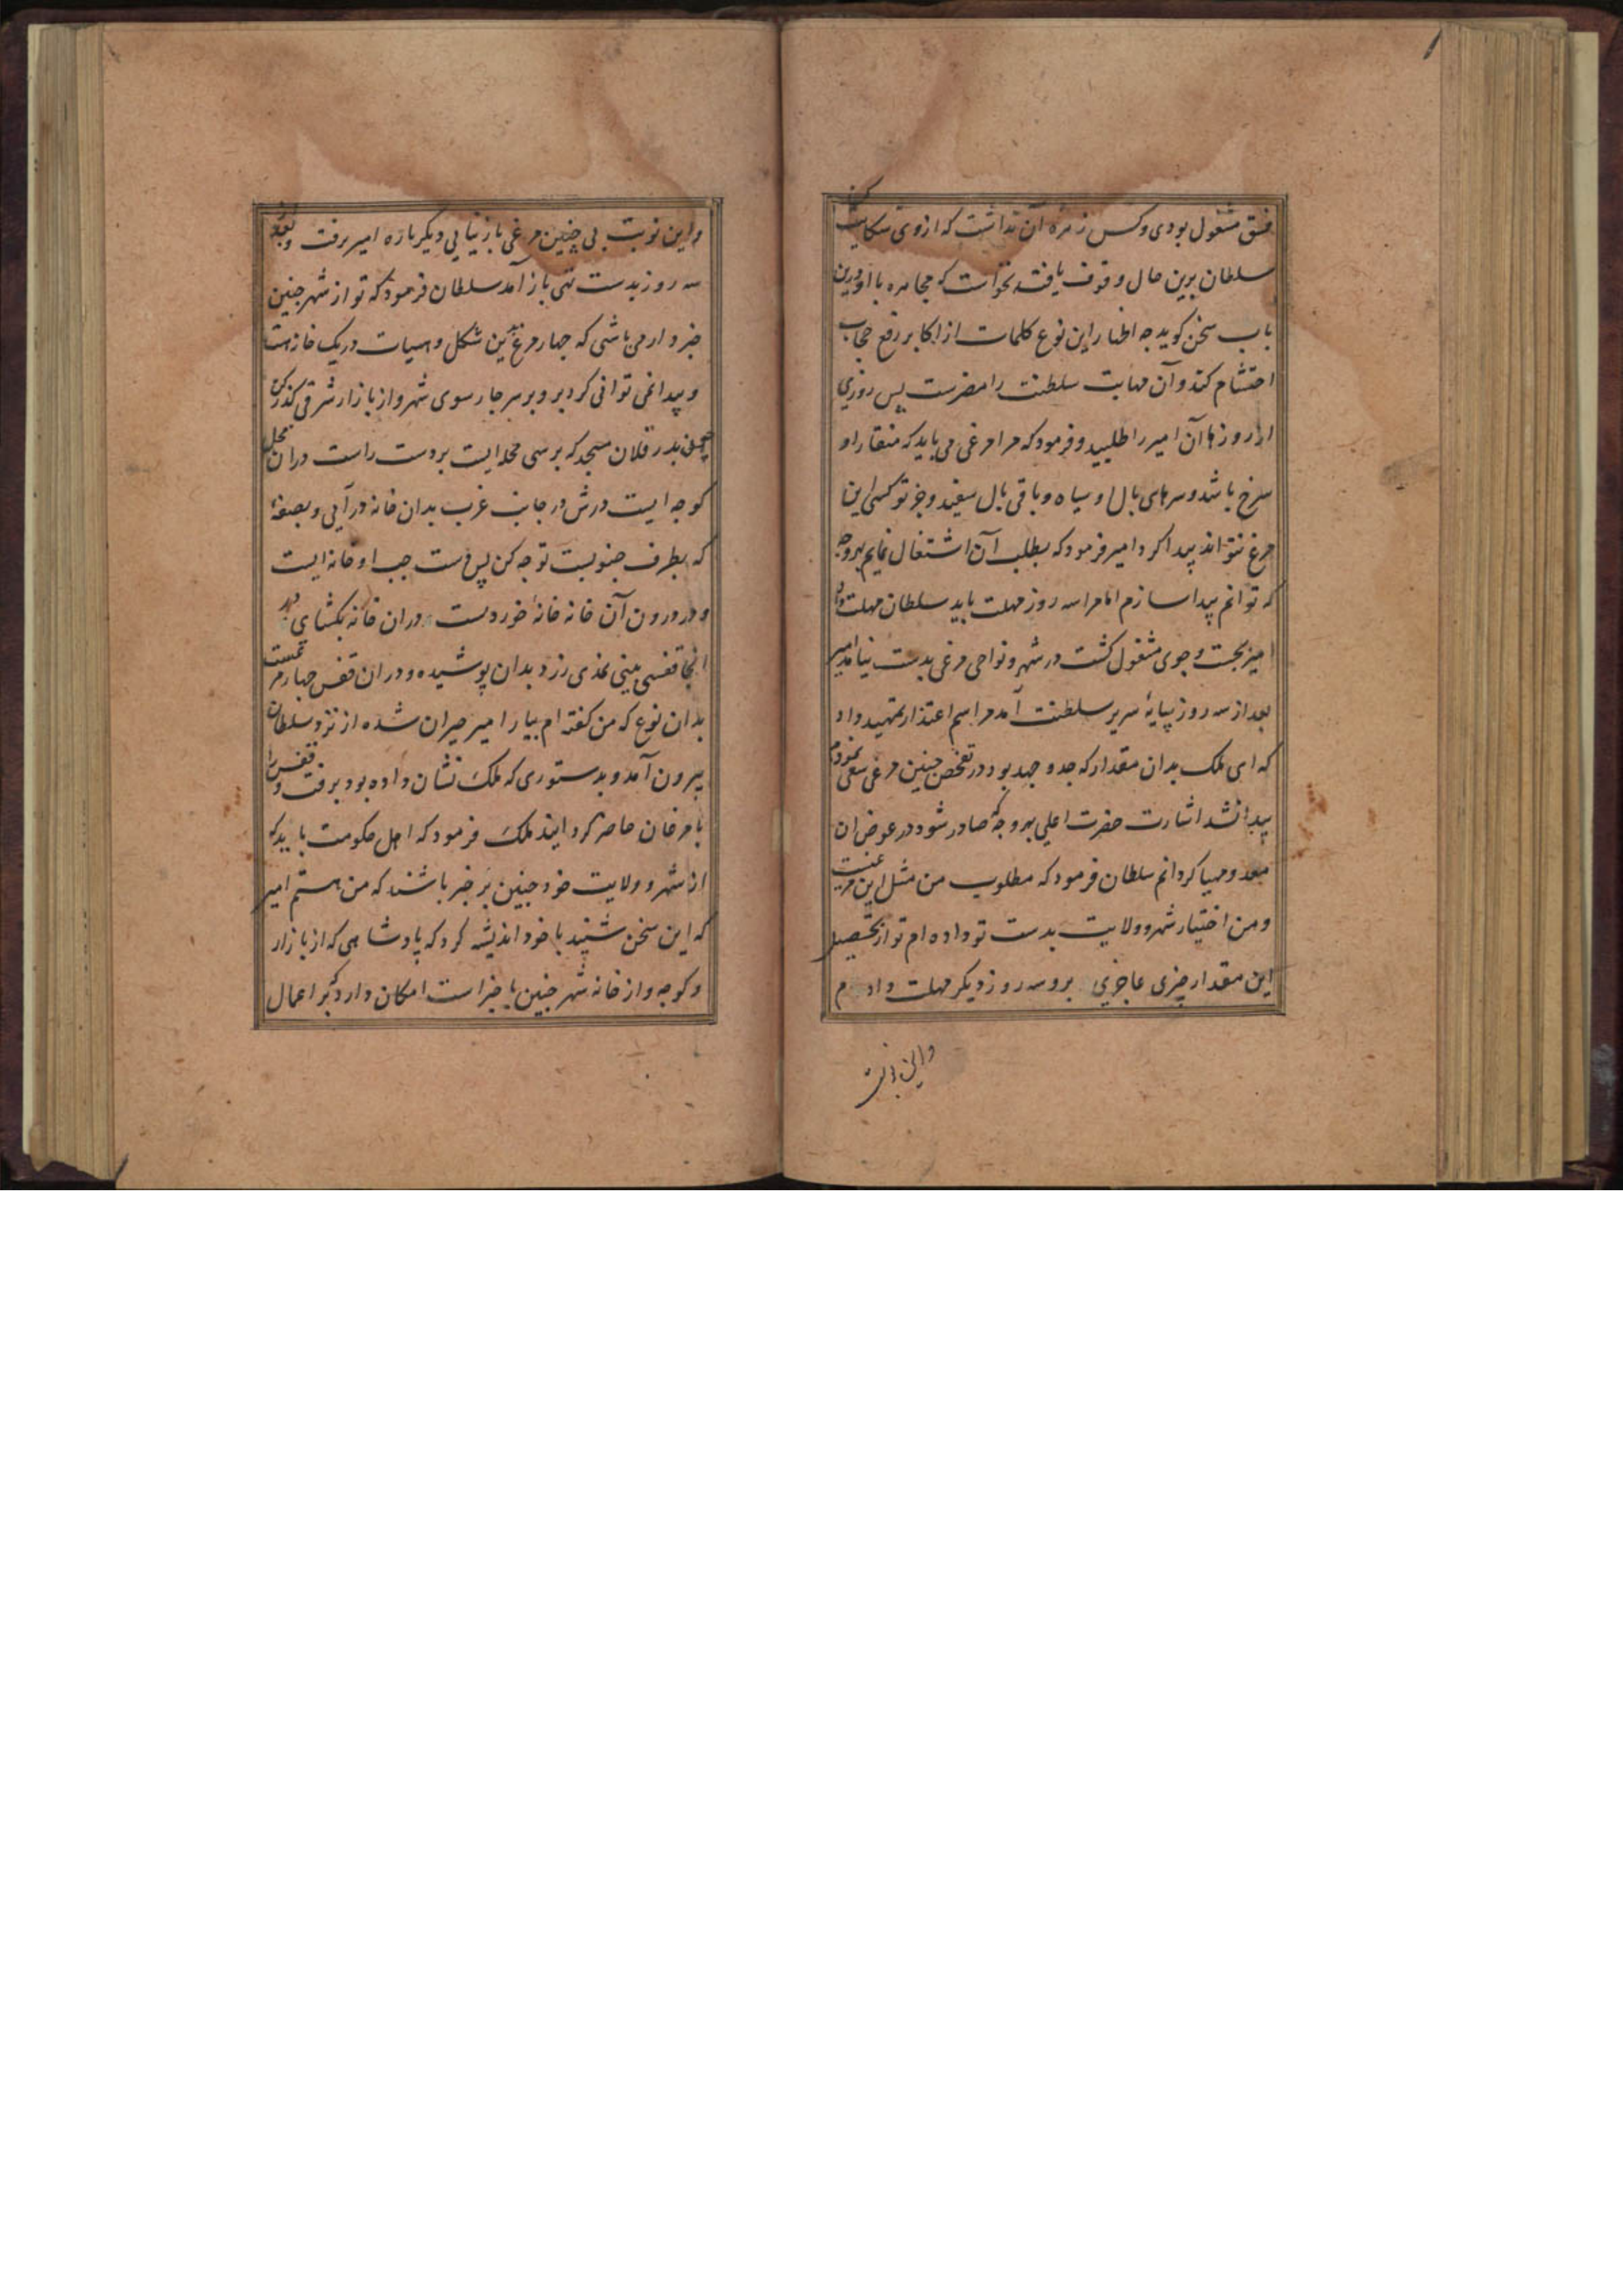 فسق مشغول بودی و کس زهره آن نداشت که ازوی شکایت کند
سلطان برین حال وقوف یافت نخواست که مجاهره با او درین
باب سخن گوید چه اظهار این نوع کلمات از اکابر رفع حجاب
احتشام کند و آن مهابت سلطنت را مضرست پس روزی
از روزها آن امیر را طلبید و فرمود که مرا مرغی می باید که منقار او
سرخ باشد و سرهای بال او سیاه و باقی بال سفید و جز تو کسی این
مرغ نتواند پیدا کرد امیر فرمود که بطلب آن اشتغال نمایم بهر وجه
که توانم پیدا سازم اما مرا سه روز مهلت باید سلطان مهلت داد
امیر بجست و جوی مشغول کشت در شهر و نواحی مرغی بدست نیامد امیر
بعد از سه روز بپایهٔ سریر سلطنت آمد مراسم اعتذار تمهید داد
که ای ملک بدان مقدار که جد و جهد بود در تفحص چنین مرغی سعی نمودم
پیدا نشد اشارت حضرت اعلی بهر وجه که صادر شود در عوض آن
معد و مهیا کردانم سلطان فرمود که مطلوب من مثل این مرغیست
و من اختیار شهر و ولایت بدست تو داده ام تو از تحصیل
این مقدار چیزی عاجزی برو سه روز دیکر مهلت دادم
و این نوبت
و این نوبت بی چنین مرغی باز نیایی دیکر باره امیر برفت و بعد
سه روز بدست تهی باز آمد سلطان فرمود که تو از شهر چنین
خبردار می باشی که چهار مرغ بدین شکل و هیات در یک خانه است
و پیدا نمی توانی کرد برو بر سر چار سوی شهر و از بازار شرقی کذر کن
بدر فلان مسجد که برسی محله ایست بر دست راست در آن محله
کوچه ایست درش در جانب غرب بدان خانه در آیی و بصفهٔ
که بطرف جنوبست توجه کن پس دست چپ او خانه ایست
و در درون آن خانه خانهٔ خوردست در ان خانه بکشای در
انجا قفسی بینی نمدی زرد بدان پوشیده و در ان قفس چهار مرغست
بدان نوع که من کفته ام بیار امیر حیران شده از نزد سلطان
بیرون آمد و بدستوری که ملک نشان داده بود برفت و قفس را
با مرغان حاضر کردانید ملک فرمود که اهل حکومت باید که
از شهر و ولایت خود چنین پر خبر باشند که من هستم امیر
که این سخن شنید با خود اندیشه کرد که پادشاهی که از بازار
و کوچه و از خانه شهر چنین با خبر است امکان دارد که بر اعمال